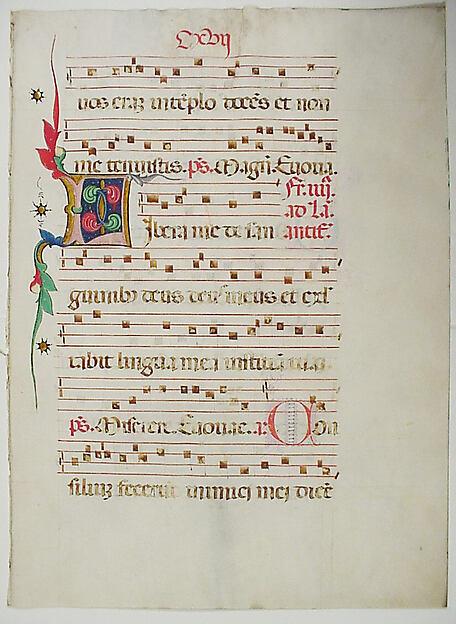 Cxvij
uos eraʒ in tēplo docēs et non
me tenuistis. ps. Magn̄. Euoua.
Fr̄. iiij.
ad La.
antif̄.
Libera me de san
guinibꝰ deus deus meus et exl
tabit lingua mea iusticiā tuā.
ps. Miserer. Euouae. a. Con
siliuʒ fecerūt inimici mei dicēt